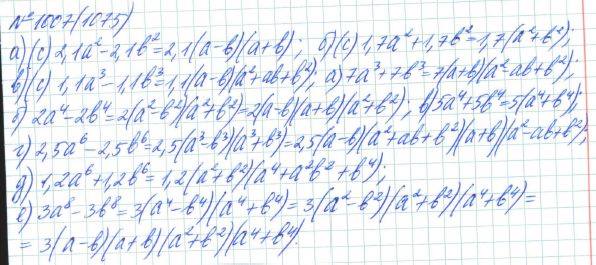 № 1007(1075)
а)(с) 2,1a²-2,1b²=2,1(a-b)(a+b); б)(с) 1,7a²+1,7b²=1,7(a²+b²);
в)(с) 1,1a³-1,1b³=1,1(a-b)(a²+ab+b²); а) 7a³+7b³=7(a+b)(a²-ab+b²);
б) 2a⁴-2b⁴=2(a²-b²)(a²+b²)=2(a-b)(a+b)(a²+b²); в) 5a⁴+5b⁴=5(a⁴+b⁴);
г) 2,5a⁶-2,5b⁶=2,5(a³-b³)(a³+b³)=2,5(a-b)(a²+ab+b²)(a+b)(a²-ab+b²);
д) 1,2a⁶+1,2b⁶=1,2(a²+b²)(a⁴+a²b²+b⁴);
е) 3a⁸-3b⁸=3(a⁴-b⁴)(a⁴+b⁴)=3(a²-b²)(a²+b²)(a⁴+b⁴)=
=3(a-b)(a+b)(a²+b²)(a⁴+b⁴).